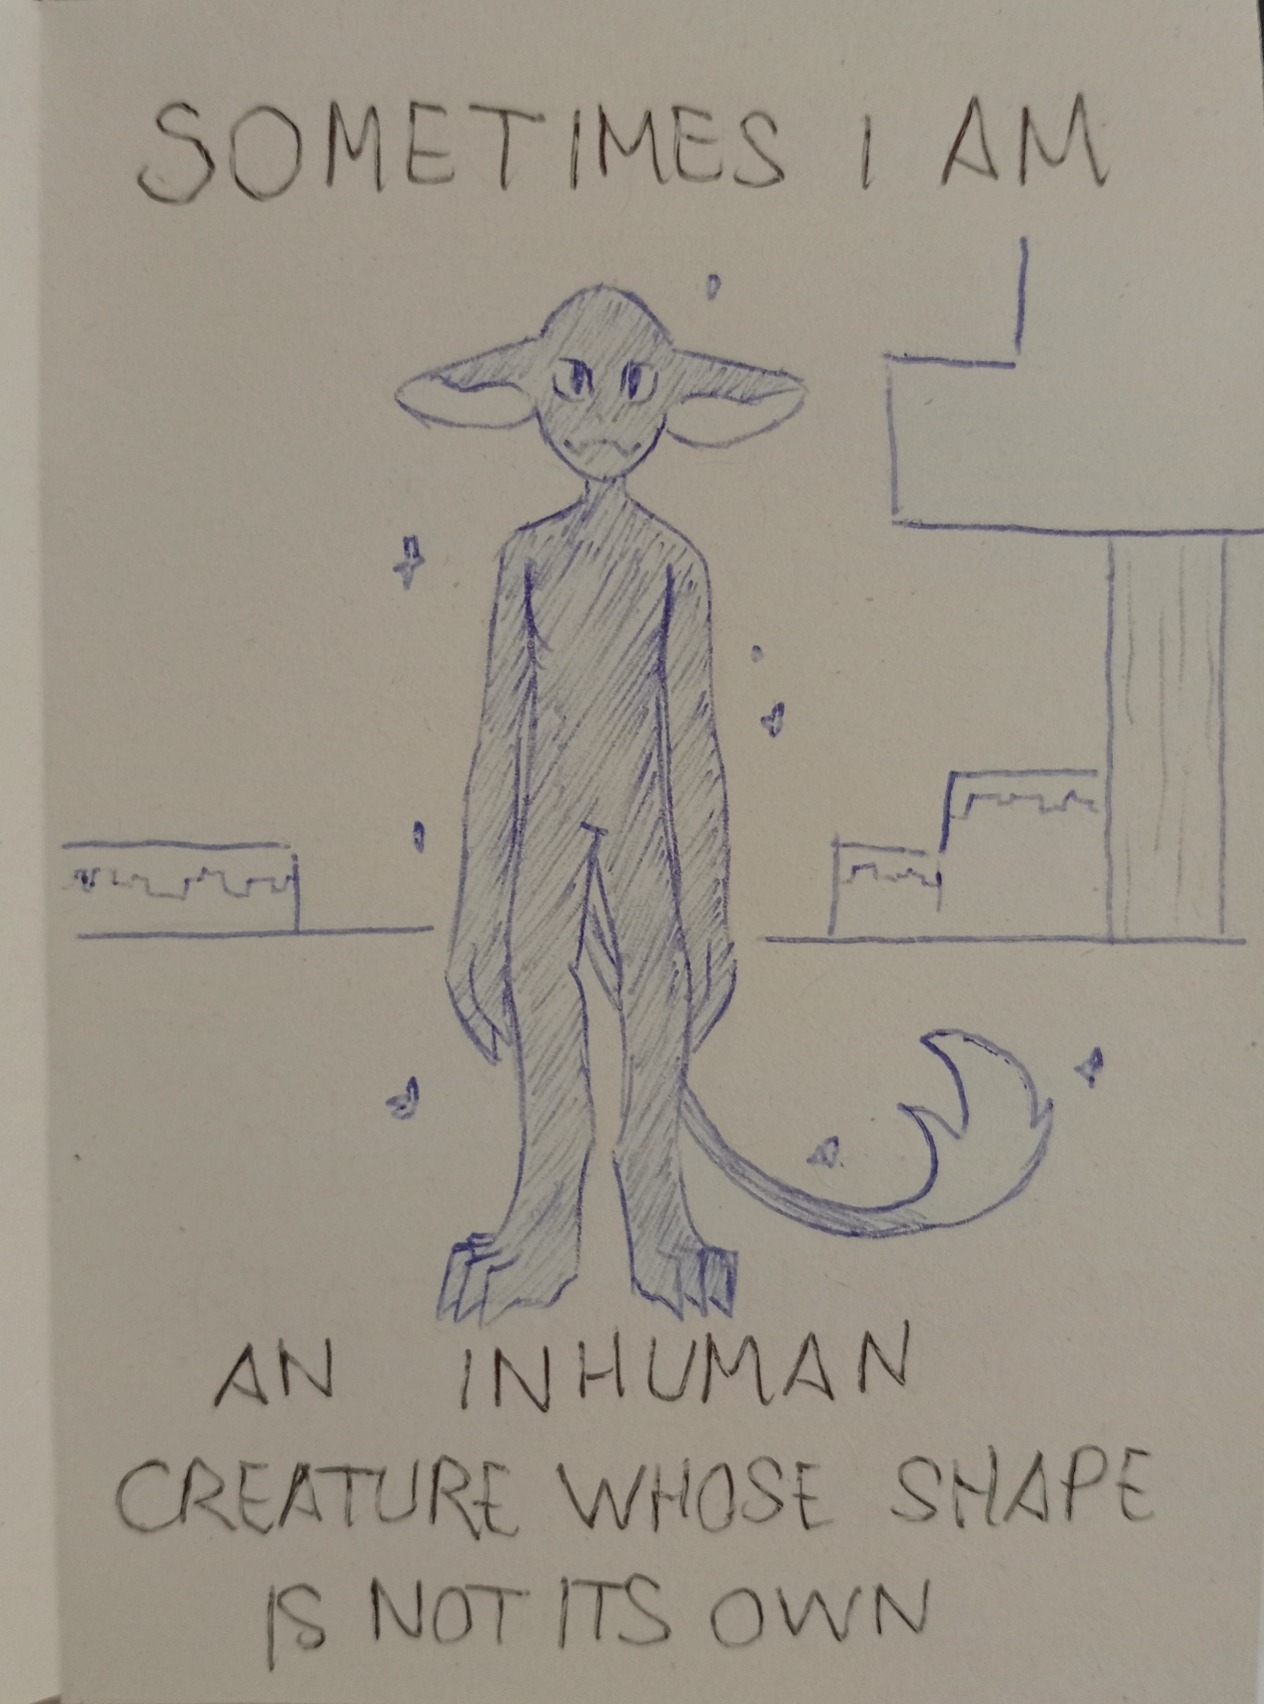 SOMETIMES I AM
AN INHUMAN
CREATURE WHOSE SHAPE
IS NOT ITS OWN